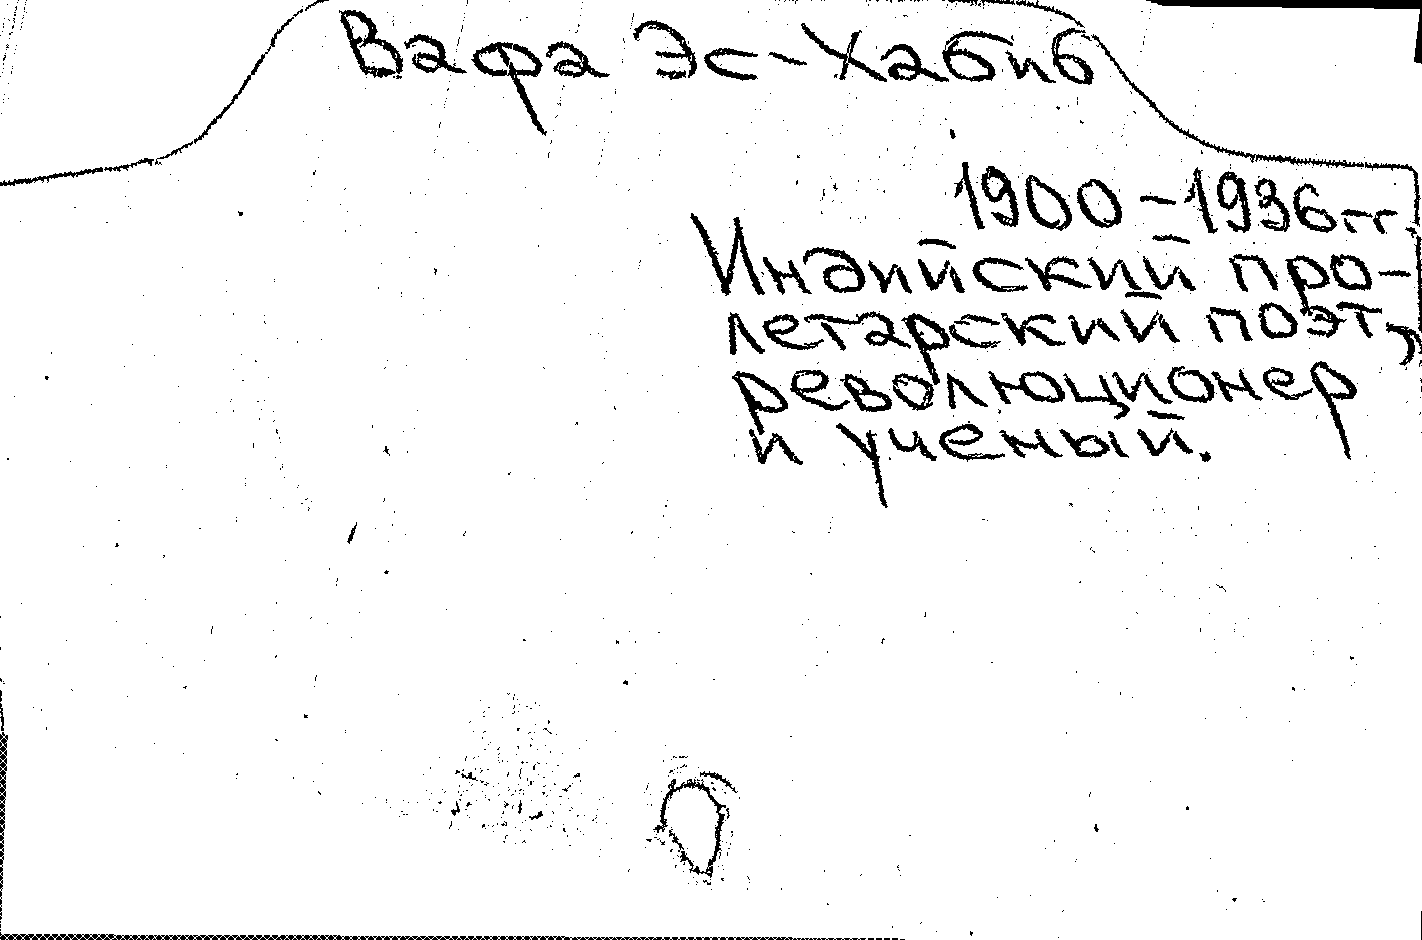 Вафа Эс-Хабиб
1900-1936гг.
Индийский про-
летарский поэт,
революционер
и ученый.